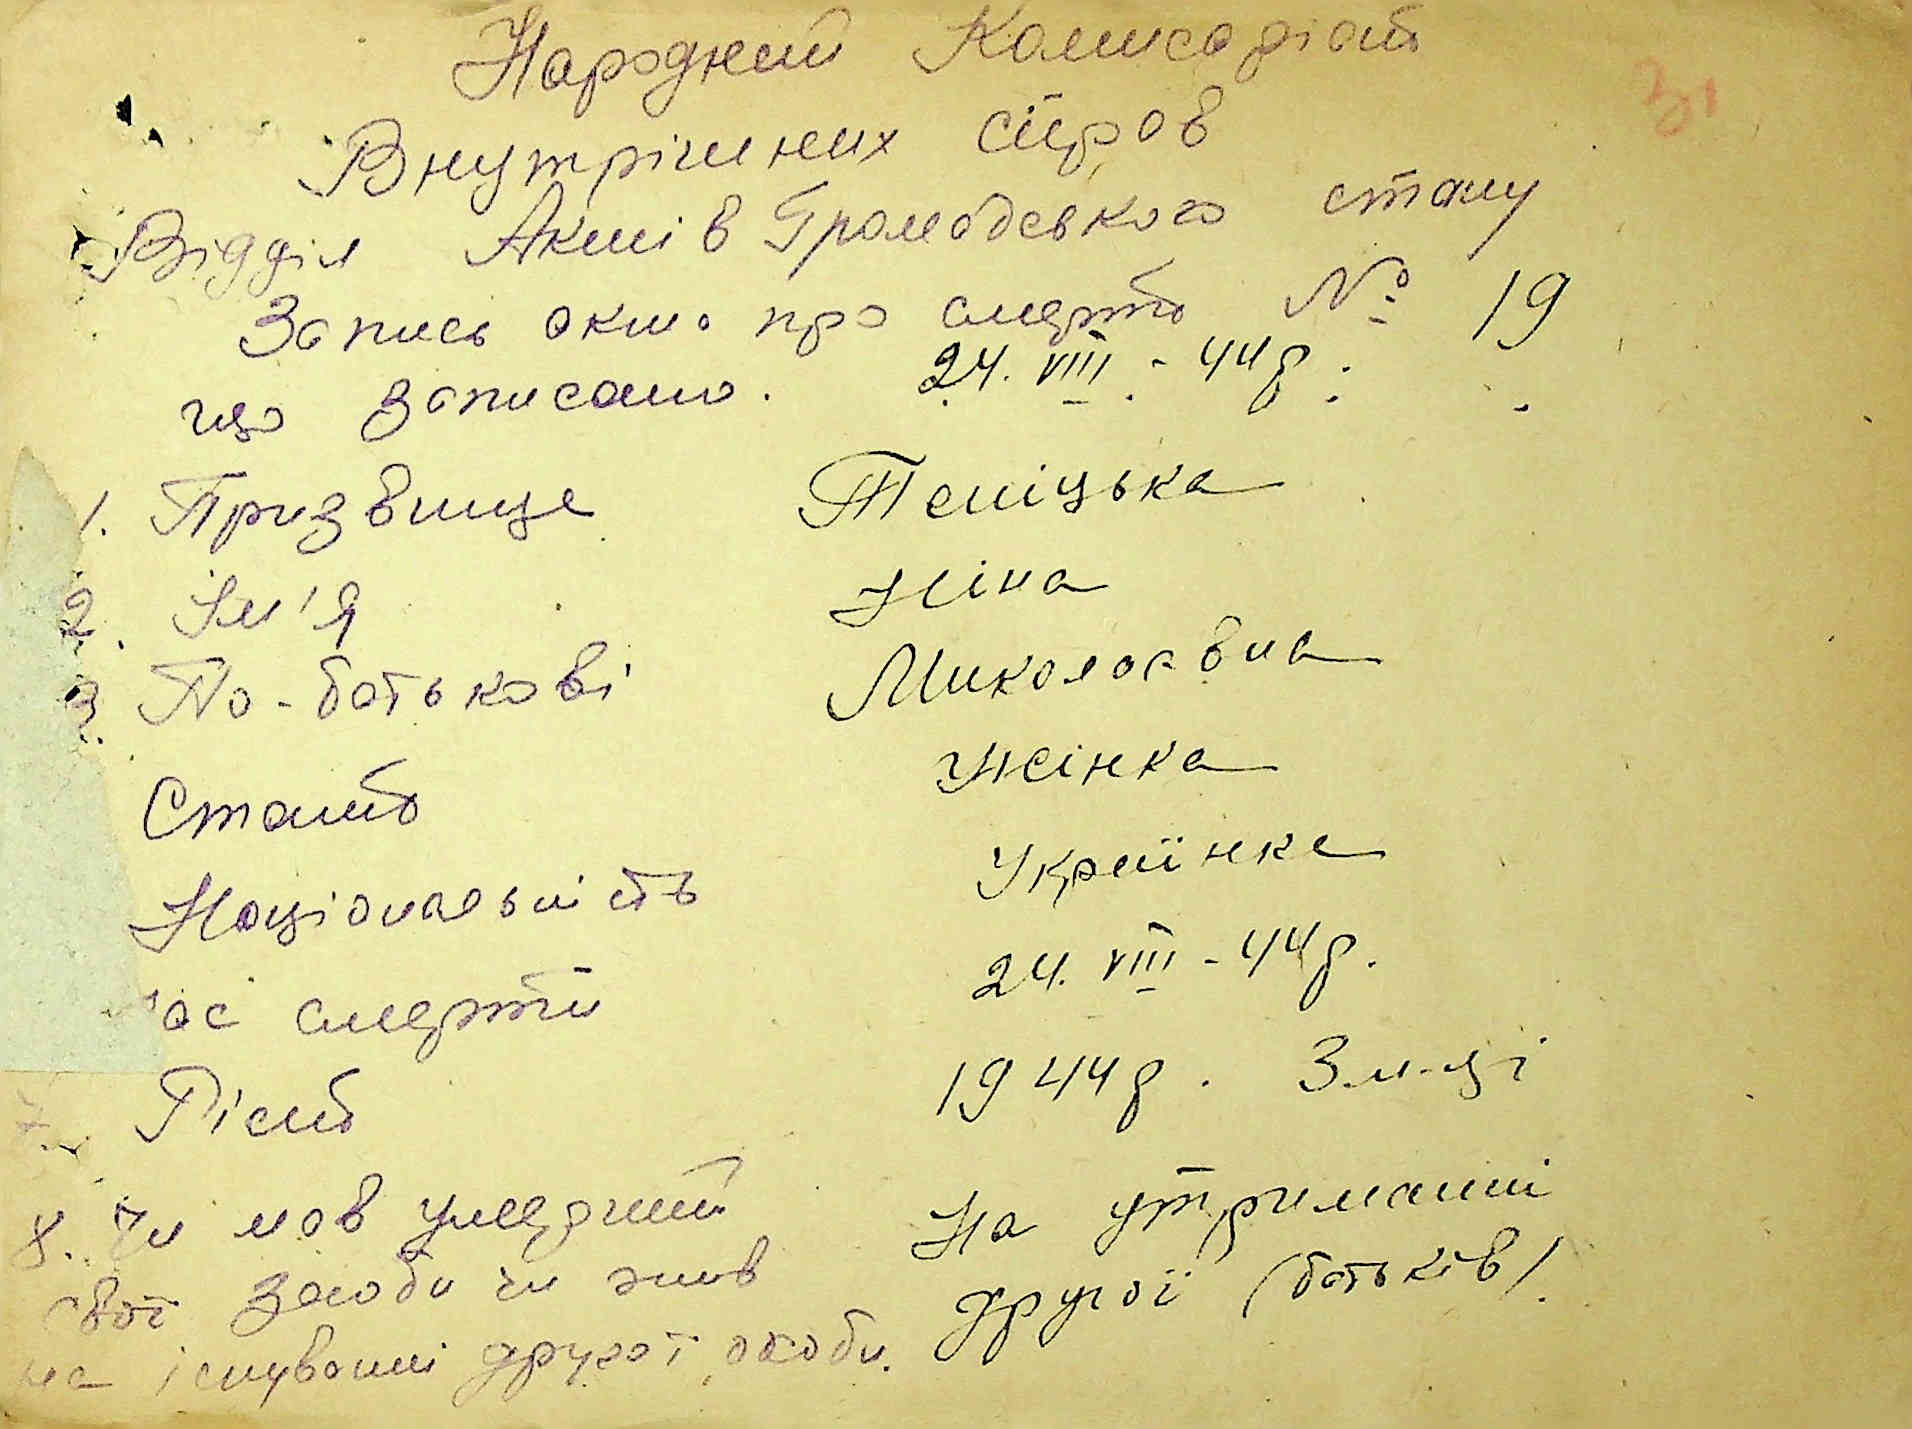 31
Народний Комисаріат
Внутрішних справ
Відділ Актів Громадського стану
Запись акта про смерть № 19
що записано. 24. VIII - 44 р.
1. Призвище Теніцька
2. Ім'я Ніна
3. По-батькові Миколаєвна
Стать Жінка
Національність Українка
ас смерти 24. VIII - 44 р.
7. Вість 1944 р. 3 м-ці
8. Чи мав умерший На утриманні
свої засоби чи жив другої (батьків).
на існуванні другої особи.